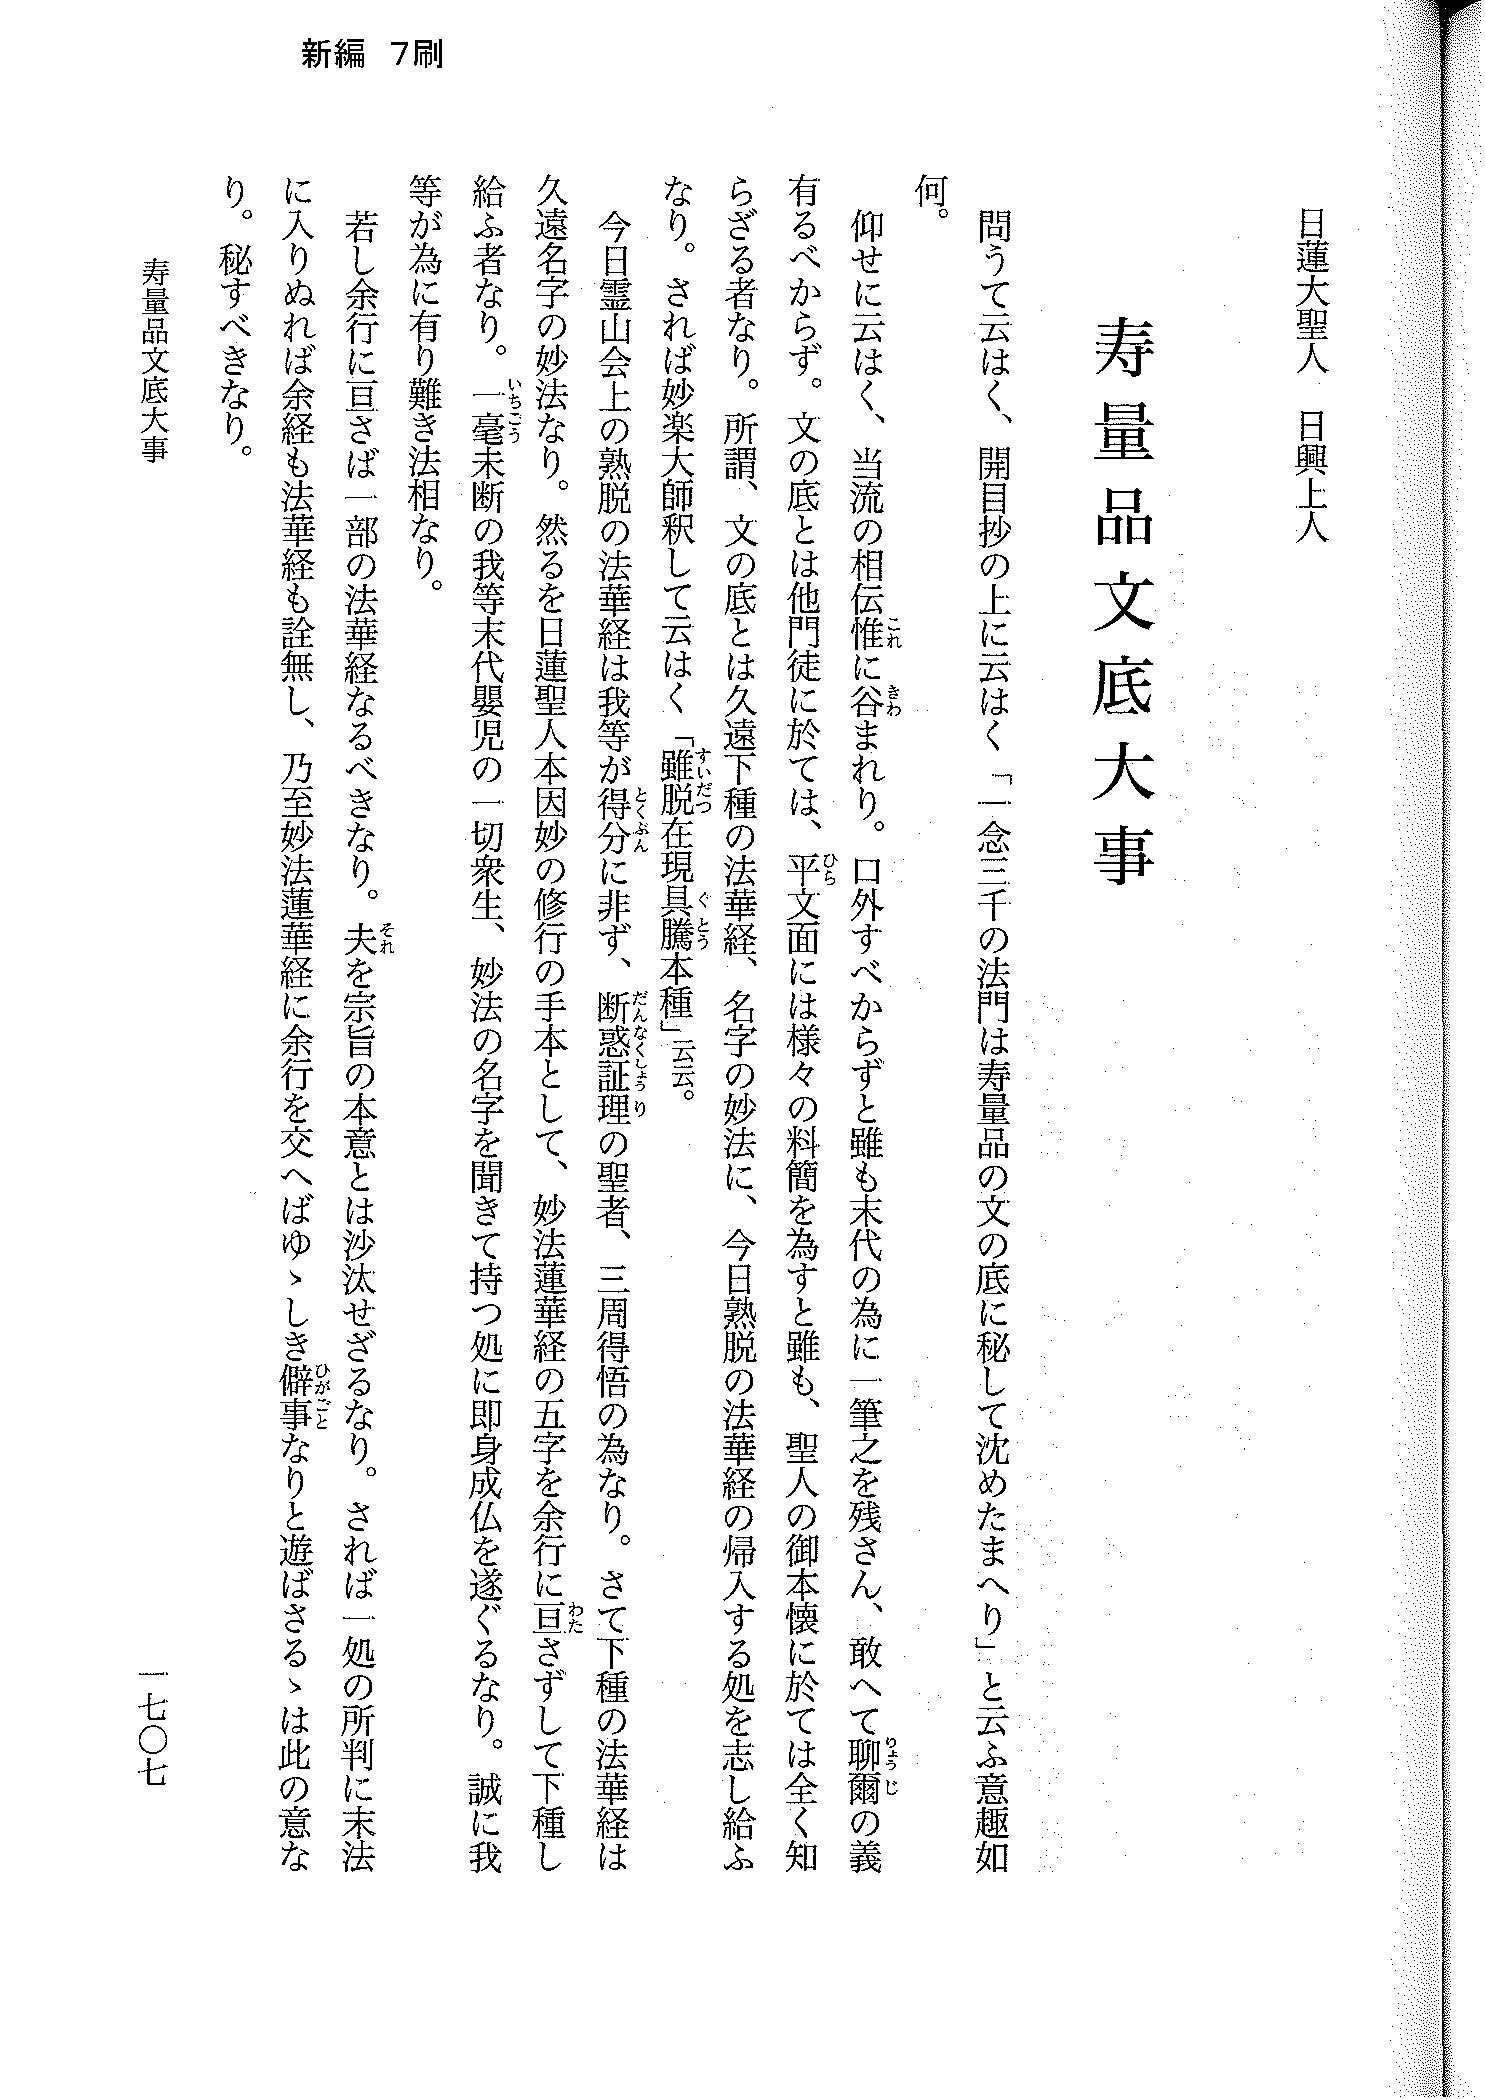 新編　7刷
日蓮大聖人　日興上人
寿量品文底大事
問うて云はく、開目抄の上に云はく「一念三千の法門は寿量品の文の底に秘して沈めたまへり」と云ふ意趣如
何。
仰せに云はく、当流の相伝惟に谷まれり。口外すべからずと雖も末代の為に一筆之を残さん、敢へて聊爾の義
有るべからず。文の底とは他門徒に於ては、平文面には様々の料簡を為すと雖も、聖人の御本懐に於ては全く知
らざる者なり。所謂、文の底とは久遠下種の法華経、名字の妙法に、今日熟脱の法華経の帰入する処を志し給ふ
なり。されば妙楽大師釈して云はく「雖脱在現具騰本種」云云。
今日霊山会上の熟脱の法華経は我等が得分に非ず、断惑証理の聖者、三周得悟の為なり。さて下種の法華経は
久遠名字の妙法なり。然るを日蓮聖人本因妙の修行の手本として、妙法蓮華経の五字を余行に亘さずして下種し
給ふ者なり。一毫未断の我等末代嬰児の一切衆生、妙法の名字を聞きて持つ処に即身成仏を遂ぐるなり。誠に我
等が為に有り難き法相なり。
若し余行に亘さば一部の法華経なるべきなり。夫を宗旨の本意とは沙汰せざるなり。されば一処の所判に末法
に入りぬれば余経も法華経も詮無し、乃至妙法蓮華経に余行を交へばゆゝしき僻事なりと遊ばさるゝは此の意な
り。秘すべきなり。
寿量品文底大事
一七〇七